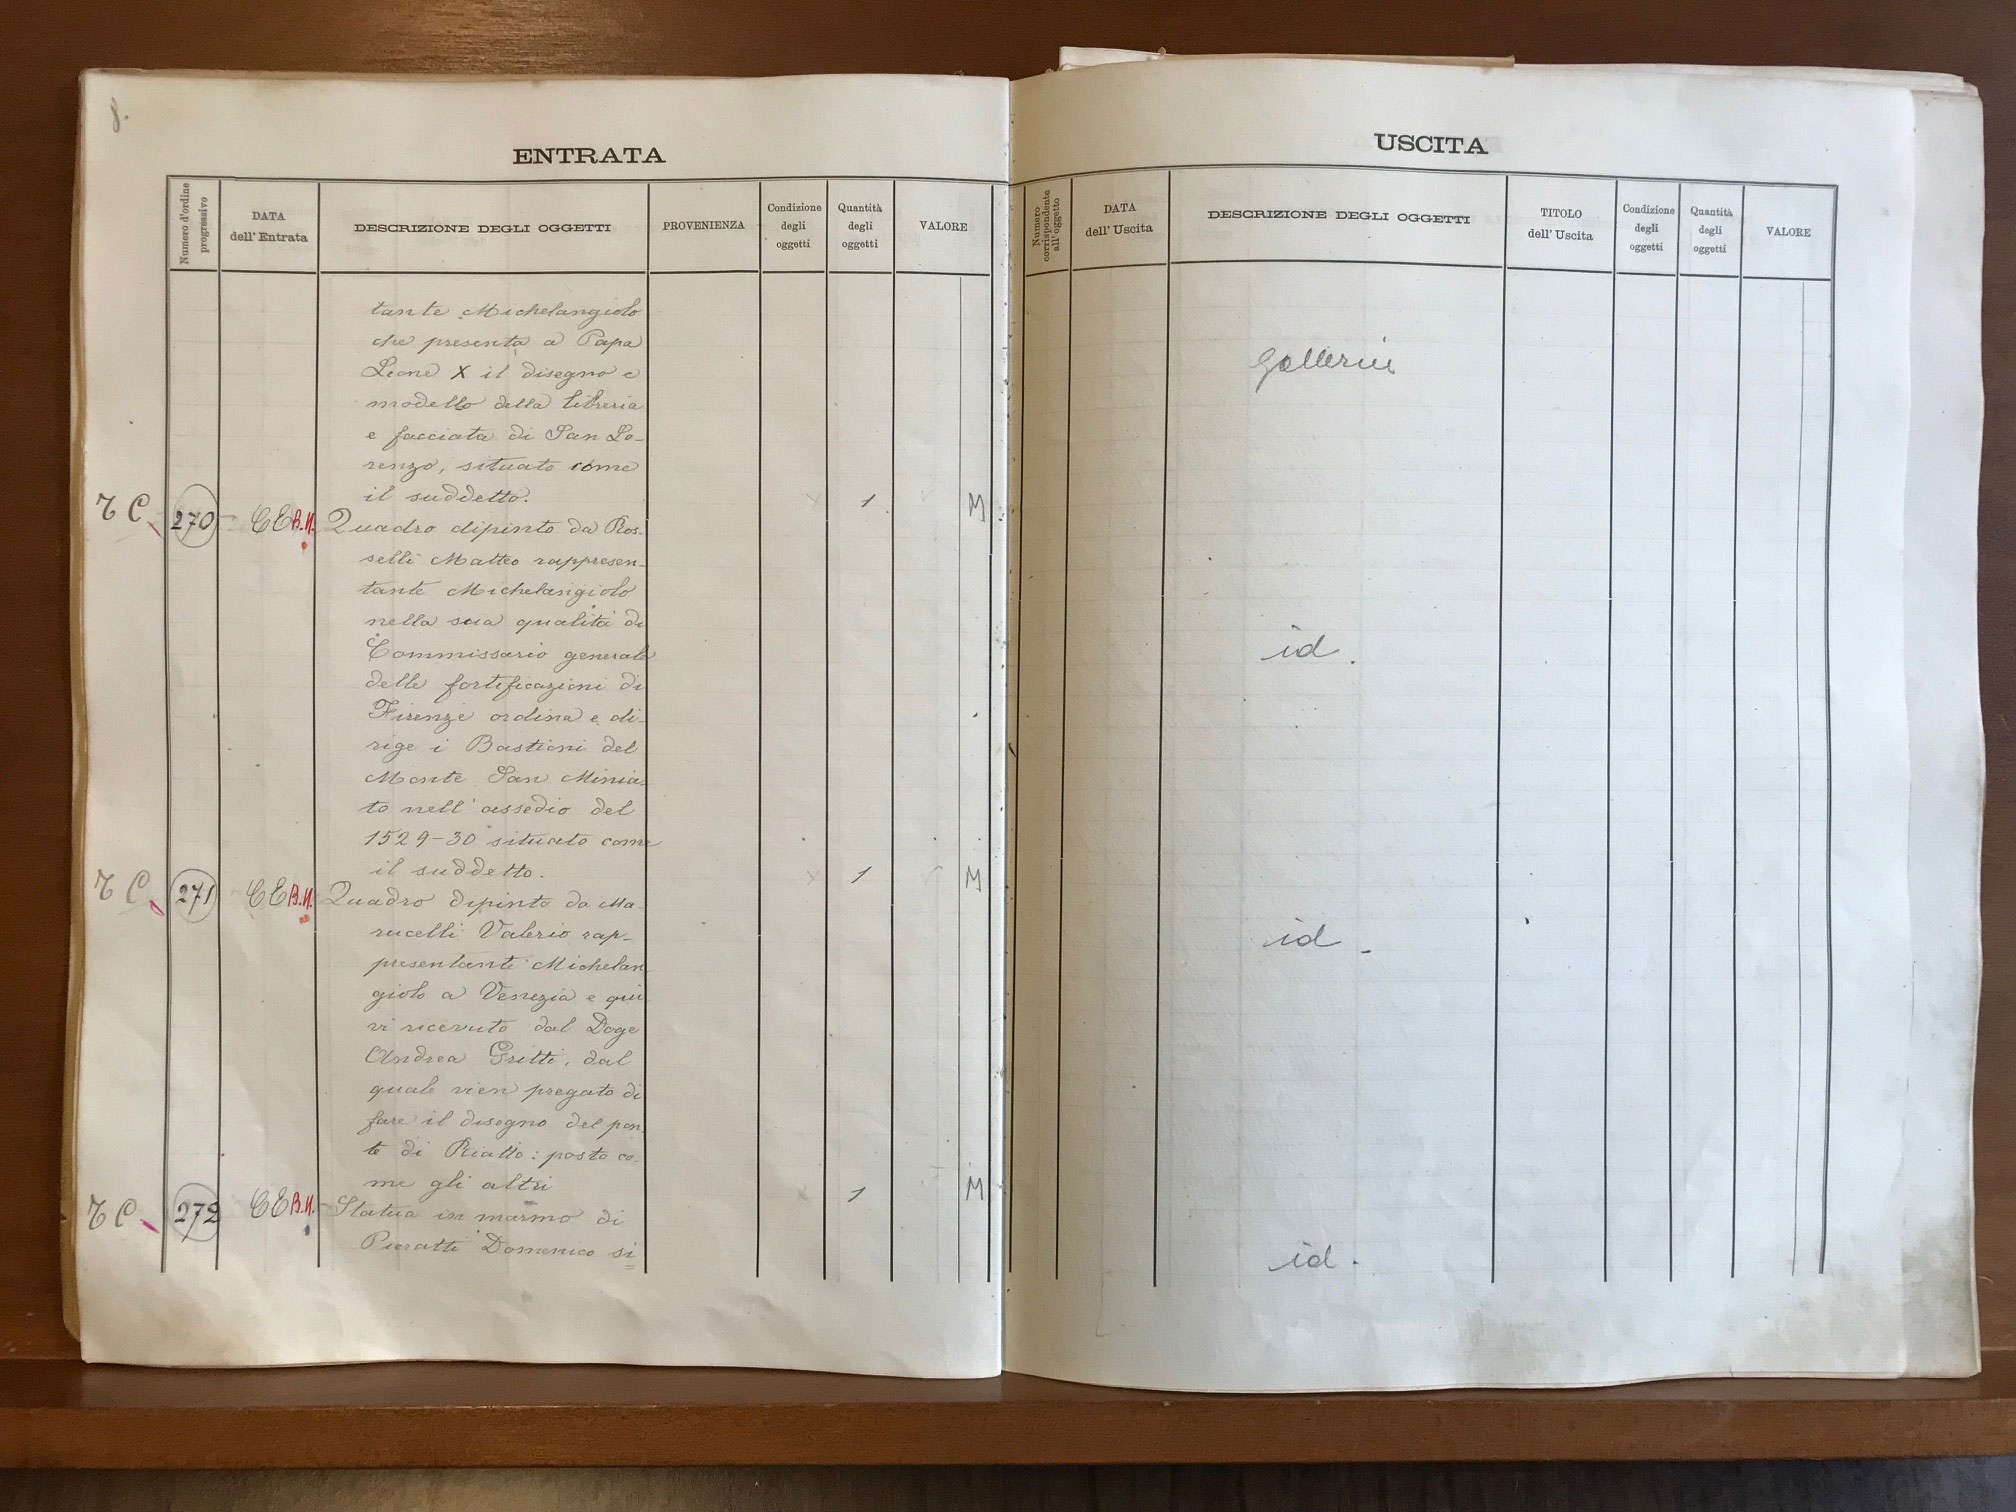 8.
ENTRATA
Numero d'ordine progressivo
DATA dell' Entrata
DESCRIZIONE DEGLI OGGETTI
PROVENIENZA
Condizione degli oggetti
Quantità degli oggetti
VALORE
tante Michelangiolo
che presenta a Papa
Leone X il disegno e
modello della libreria
e facciata di San Lo-
renzo, situato come
il suddetto. 1 M
T C 270 CE B.N. Quadro dipinto da Ros-
selli Matteo rappresen-
tante Michelangiolo
nella sua qualità di
Commissario generale
delle fortificazioni di
Firenze ordina e di-
rige i Bastioni del
Monte San Minia-
to nell' assedio del
1529-30 situato come
il suddetto. 1 M
T C 271 CE B.N. Quadro dipinto da Ma-
rucelli Valerio rap-
presentante Michelan
giolo a Venezia e qui
vi ricevuto dal Doge
Andrea Gritti, dal
quale vien pregato di
fare il disegno del pon
te di Rialto: posto co-
me gli altri 1 M
T C 272 CE B.N. Statua in marmo di
Pieratti Domenico si
USCITA
Numero corrispondente all' oggetto
DATA dell' Uscita
DESCRIZIONE DEGLI OGGETTI
TITOLO dell' Uscita
Condizione degli oggetti
Quantità degli oggetti
VALORE
Gallerie
id.
id -
id.